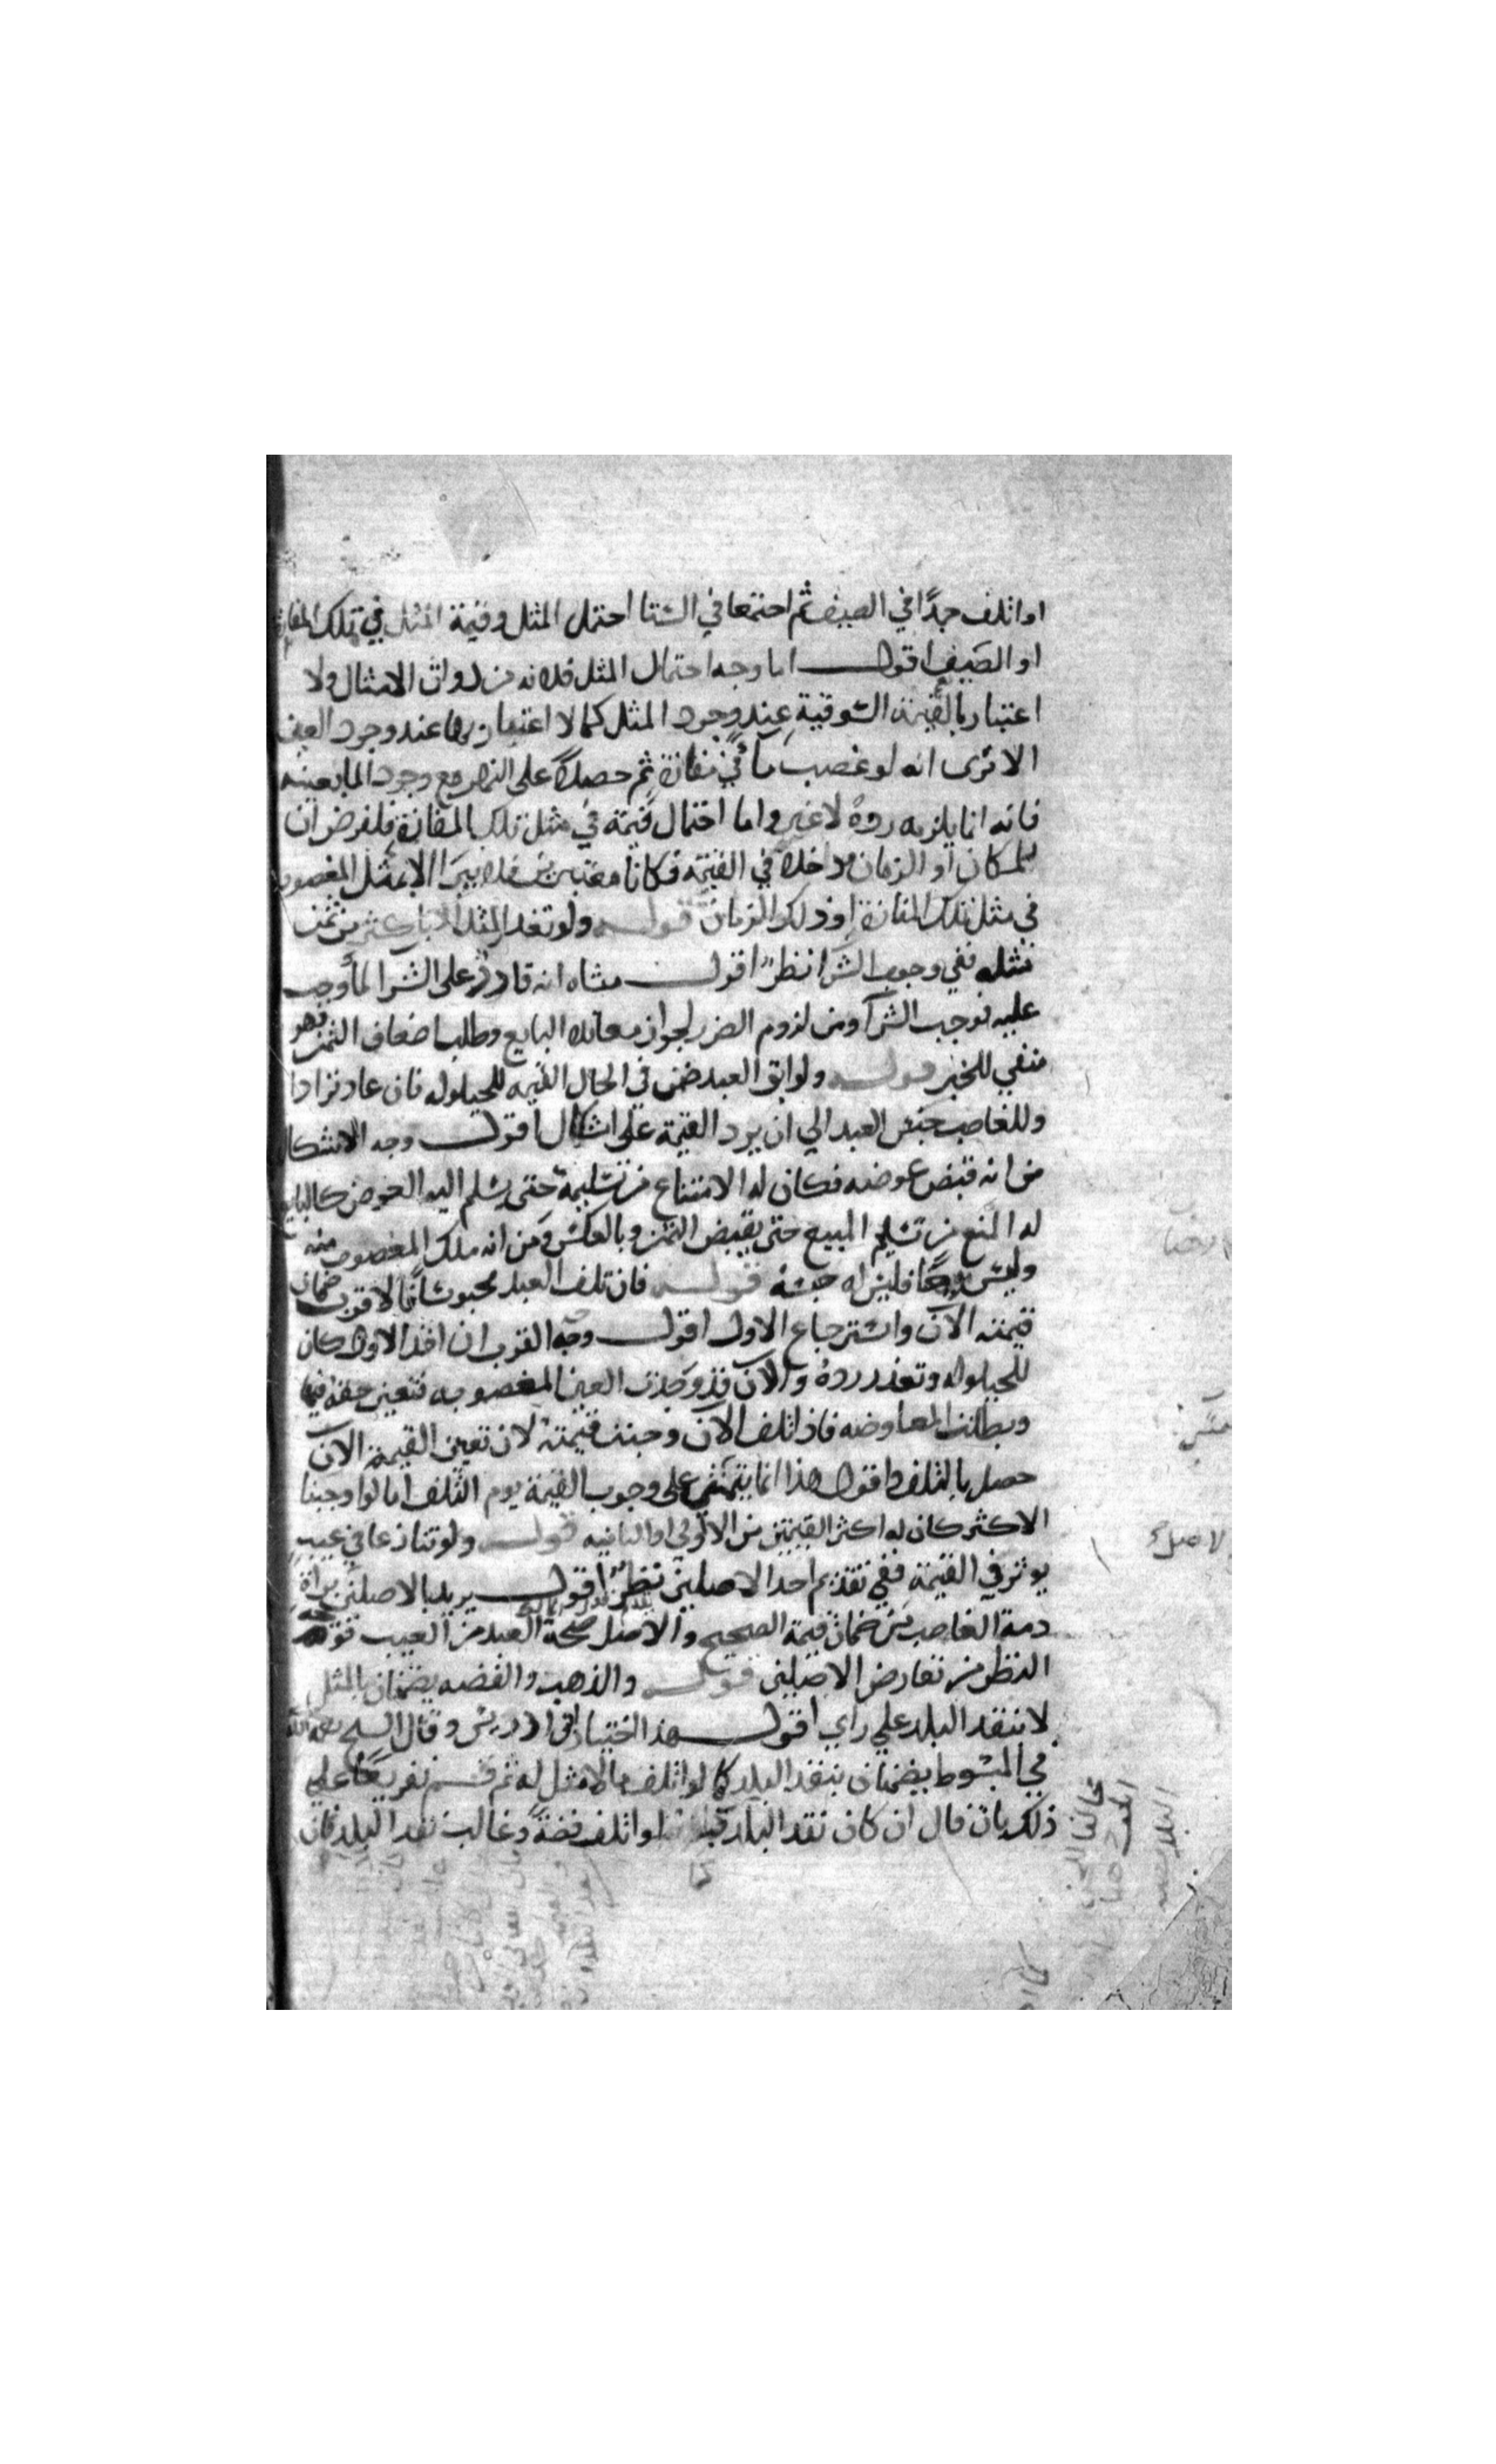 او اتلف جمدًا في الصيف ثم اجتمعا في الشتا احتمل المثل وقيمة المثل في تلك المفازة
او الصيف اقول اما وجه احتمال المثل فلانه من ذوات الامثال ولا
اعتبار بالقيمة السوقية عند وجود المثل كما لا اعتبار بها عند وجود العين
الا ترى انه لو غصب مآ في مفازة ثم حصلا على النهر مع وجود الما بعينه
فانه انما يلزمه رده لا غير واما احتمال قيمة في مثل تلك المفازة فلفرض ان
للمكان او الزمان مدخلا في القيمة فكانا معتبرين فلا يبرا الا بمثل المغصوب
في مثل تلك المفازة او ذلك الزمان قوله ولو تعذر المثل الا باكثر من ثمن
مثله ففي وجوب الشرا نظر اقول منشاه انه قادر على الشرا لما وجب
عليه فوجب الشرآ ومن لزوم الضرر لجواز معاندة البايع وطلب اضعاف الثمن فهو
منفي للخبر قوله ولو ابق العبد ضمن في الحال القيمه للحيلوله فان عاد ترادا
وللغاصب حبس العبد الي ان يرد القيمة على اشكال اقول وجه الاشكال
من انه قبض عوضه فكان له الامتناع من تسليمه حتى يسلم اليه العوض كالبايع
له المنع من تسليم المبيع حتى يقبض الثمن وبالعكس ومن انه ملك المغصوب منه
وليس رهنًا فليس له حبسه قوله فان تلف العبد محبوسًا فالاقرب ضمان
قيمته الآن واسترجاع الاول اقول وجه القرب ان اخذ الاول كان
للحيلوله وتعذر رده والآن قد وجدت العين المغصوبه فتعين حقه فيها
وبطلت المعاوضه فاذا تلف الآن وجبت قيمته لان تعين القيمة الآن
حصل بالتلف واقول هذا انما يتمشي على وجوب القيمة يوم التلف اما لو اوجبنا
الاكثر كان له اكثر القيمتين من الاولي او الثانيه قوله ولو تنازعا في عيب
يوثر في القيمة ففي تقديم احد الاصلين نظر اقول يريد بالاصلين براة
ذمة الغاصب من ضمان قيمة الصحيح والاصل صحة العبد من العيب فوجه
النظر من تعارض الاصلين قوله والذهب والفضه يضمنان بالمثل
لا بنقد البلد علي راي اقول هذا اختيار ابن ادريس وقال الشيخ رحمه الله
في المبسوط يضمنان بنقد البلد كما لو اتلف ما لا مثل له ثم قسم تفريعًا علي
ذلك بان قال ان كان نقد البلد لو اتلف فضةً وغالب نقد البلد فان